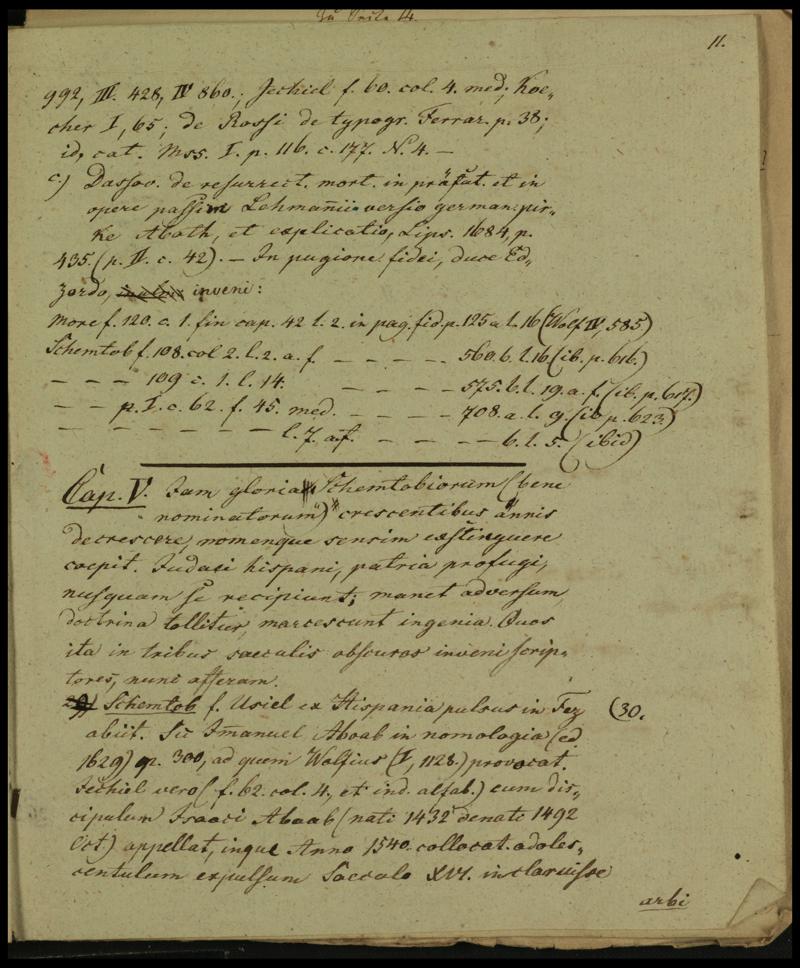 Zu Seite 14.
11.
992, III. 428, IV 860.; Jechiel f. 60. col. 4. med; Koe„
cher I, 65; de Rossi de typogr. Ferrar. p. 38;
id. cat. Mss. I. p. 116. c. 177. N. 4. —
c) Dassov. de resurrect. mort. in präfat. et in
opere passim Lehmanii versio german: pir„
ke Aboth, et explicatio, Lips. 1684, p.
435. (p. II. c. 42). — In pugione fidei, duce Ed„
zardo, inveni:
More f. 120. c. 1. fin cap. 42 l. 2. in pag. fid. p. 125 a l. 16 (Wolf IV, 585)
Schemtob f. 108. col 2. l. 2. a. f. — — — — 560. b. l. 16 (ib. p. 616.)
— — — 109 c. 1. l. 14. — — — — 575. b. l. 19. a. f. (ib. p. 617.)
— — p. I. c. 62. f. 45. med. — — — — 708. a. l. 9. (ib p. 623.)
— — — — — — l. 7. a. f. — — — — b. l. 5. (ibid)
Cap. V. Jam gloria Schemtobiorum (bene
nominatorum) crescentibus annis
decrescere, nomenque sensim exstinguere
coepit. Judaei hispani, patria profugi,
nusquam se recipiunt; manet adversum,
doctrina tollitur, marcescunt ingenia. Quos
ita in tribus saeculis obscuros inveni scrip„
tores, nunc afferam.
Schemtob f. Usiel ex Hispania pulsus in Fez (30.
abiit. Sic Imanuel Aboab in nomologia (ed
1629) p. 300, ad quem Wolfius (I, 1128.) provocat.
Jechiel vero (f. 62. col. 4., et ind. alfab.) eum dis„
cipulum Isaaci Aboab (nati 1432 denati 1492
Oct) appellat, inque Anno 1540. collocat. adoles„
centulum expulsum Saeculo XVI. inclaruisse
arbi